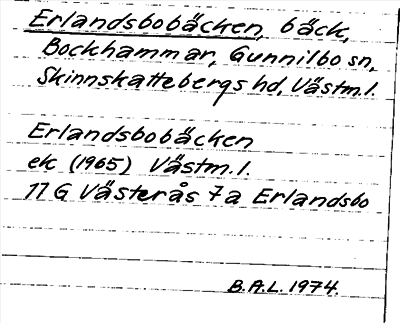 Erlandsbobäcken, bäck,
Bockhammar, Gunnilbo sn,
Skinnskattebergs hd, Västm.l.
Erlandsbobäcken
ek (1965) Västm.l.
11 G Västerås 7a Erlandsbo
B.A.L. 1974.